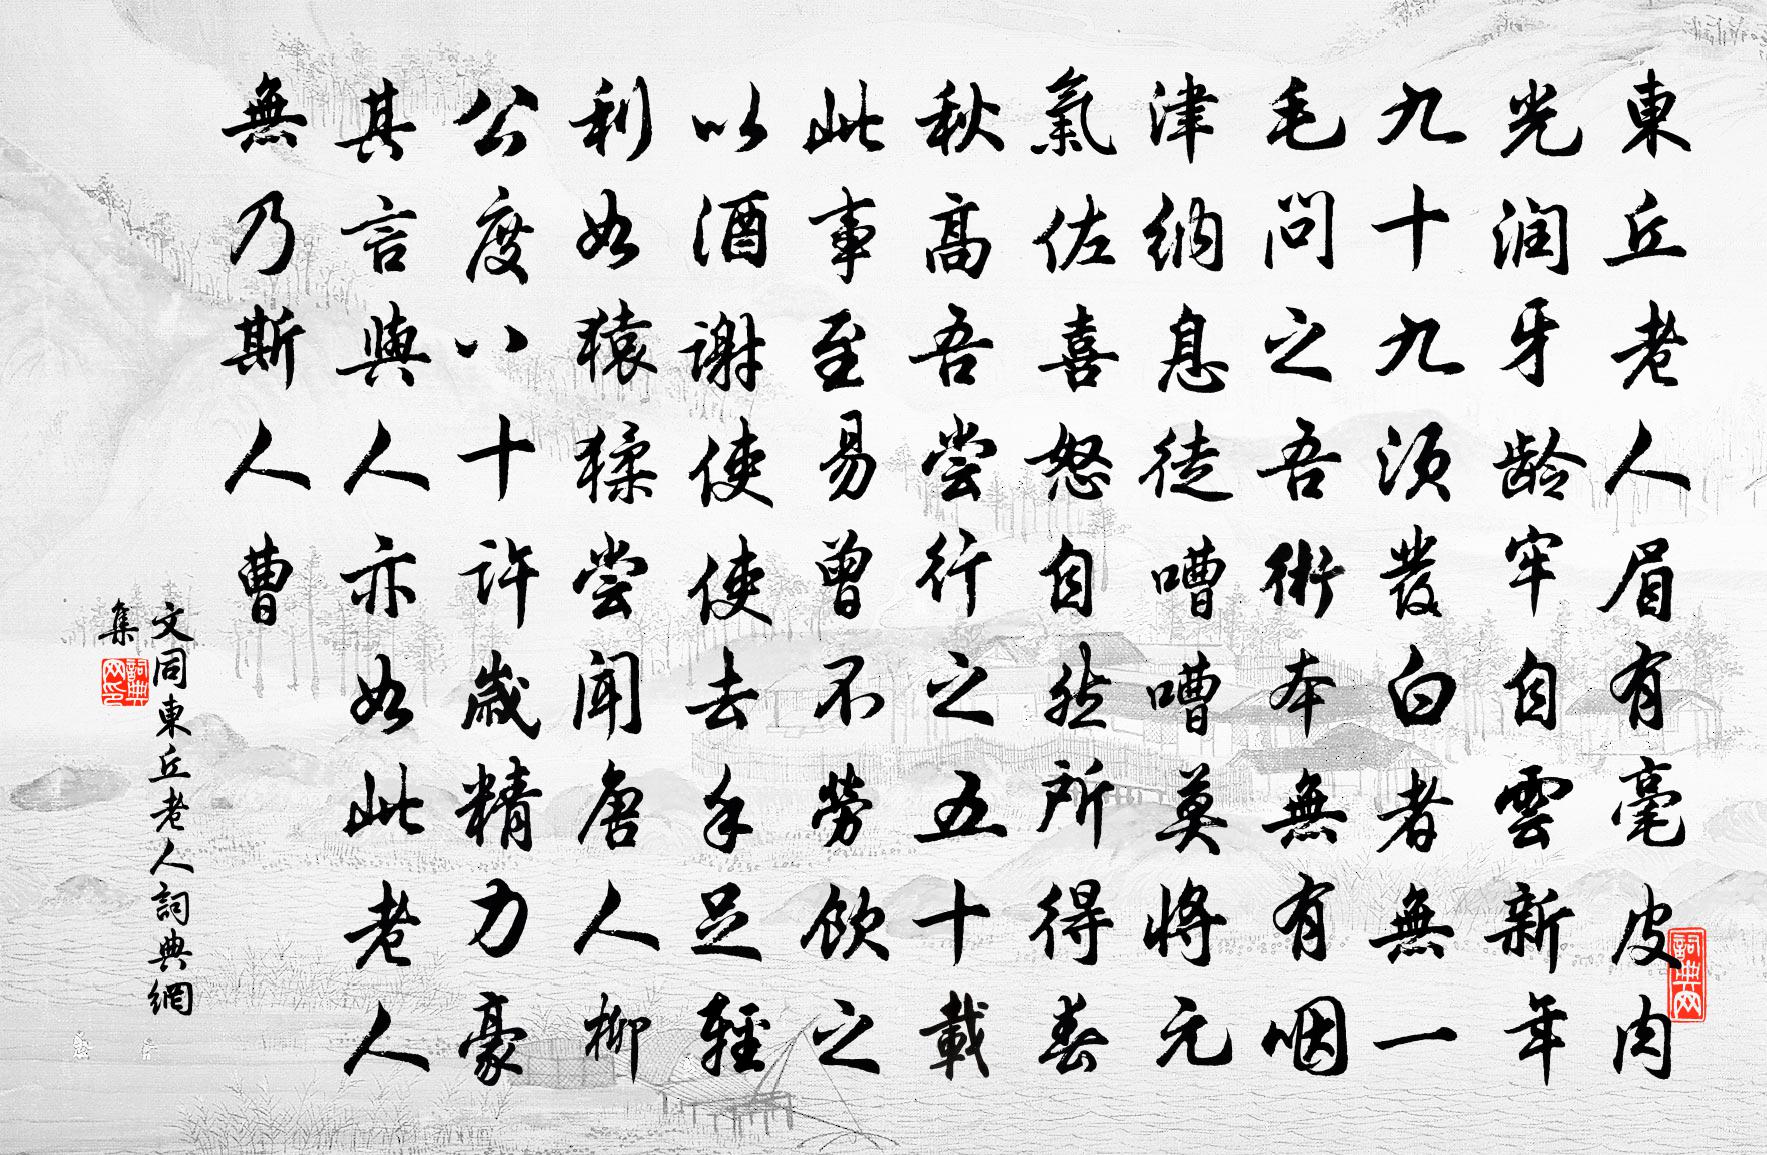 東丘老人眉有毫皮肉
光润牙龄牢自雲新年
九十九须发白者無一
毛问之吾術本無有咽
津纳息徒嘈嘈莫將元
氣佐喜怒自然所得春
秋高吾尝行之五十載
此事至易曾不劳饮之
以酒谢使使去手足輕
利如猿猱尝闻唐人柳
公度八十許歲精力豪
其言與人亦如此老人
無乃斯人曹
文同東丘老人詞典網
集
詞典网
詞典网印